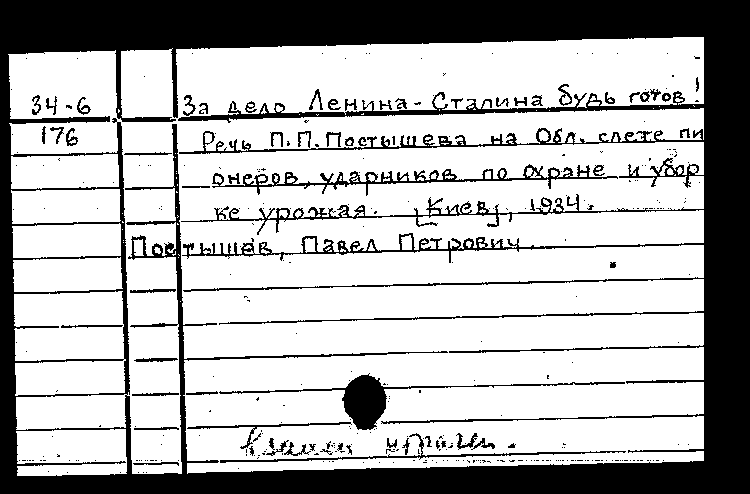 34-6 За дело Ленина-Сталина будь готов!
176 Речь П.П.Постышева на Обл. слете пи
онеров, ударников по охране и убор
ке урожая. [Киев], 1934.
Постышев, Павел Петрович.
взамен утрачен.